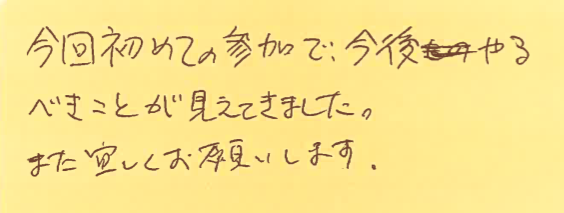 今回初めての参加で、今後やる
べきことが見えてきました。
また宜しくお願いします.